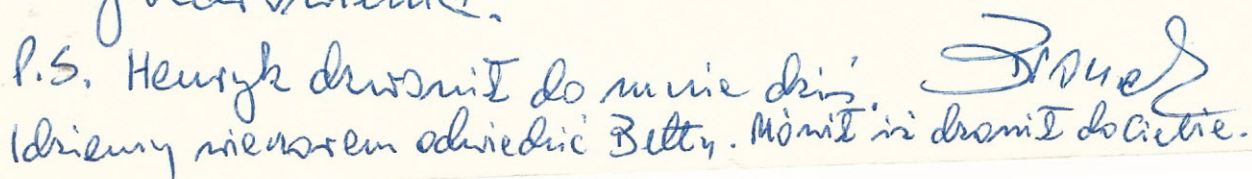 P.S. Henryk dzwonił do mnie dziś.
Idziemy wieczorem odwiedzić Betty. Mówił iż dzwonił do Ciebie.